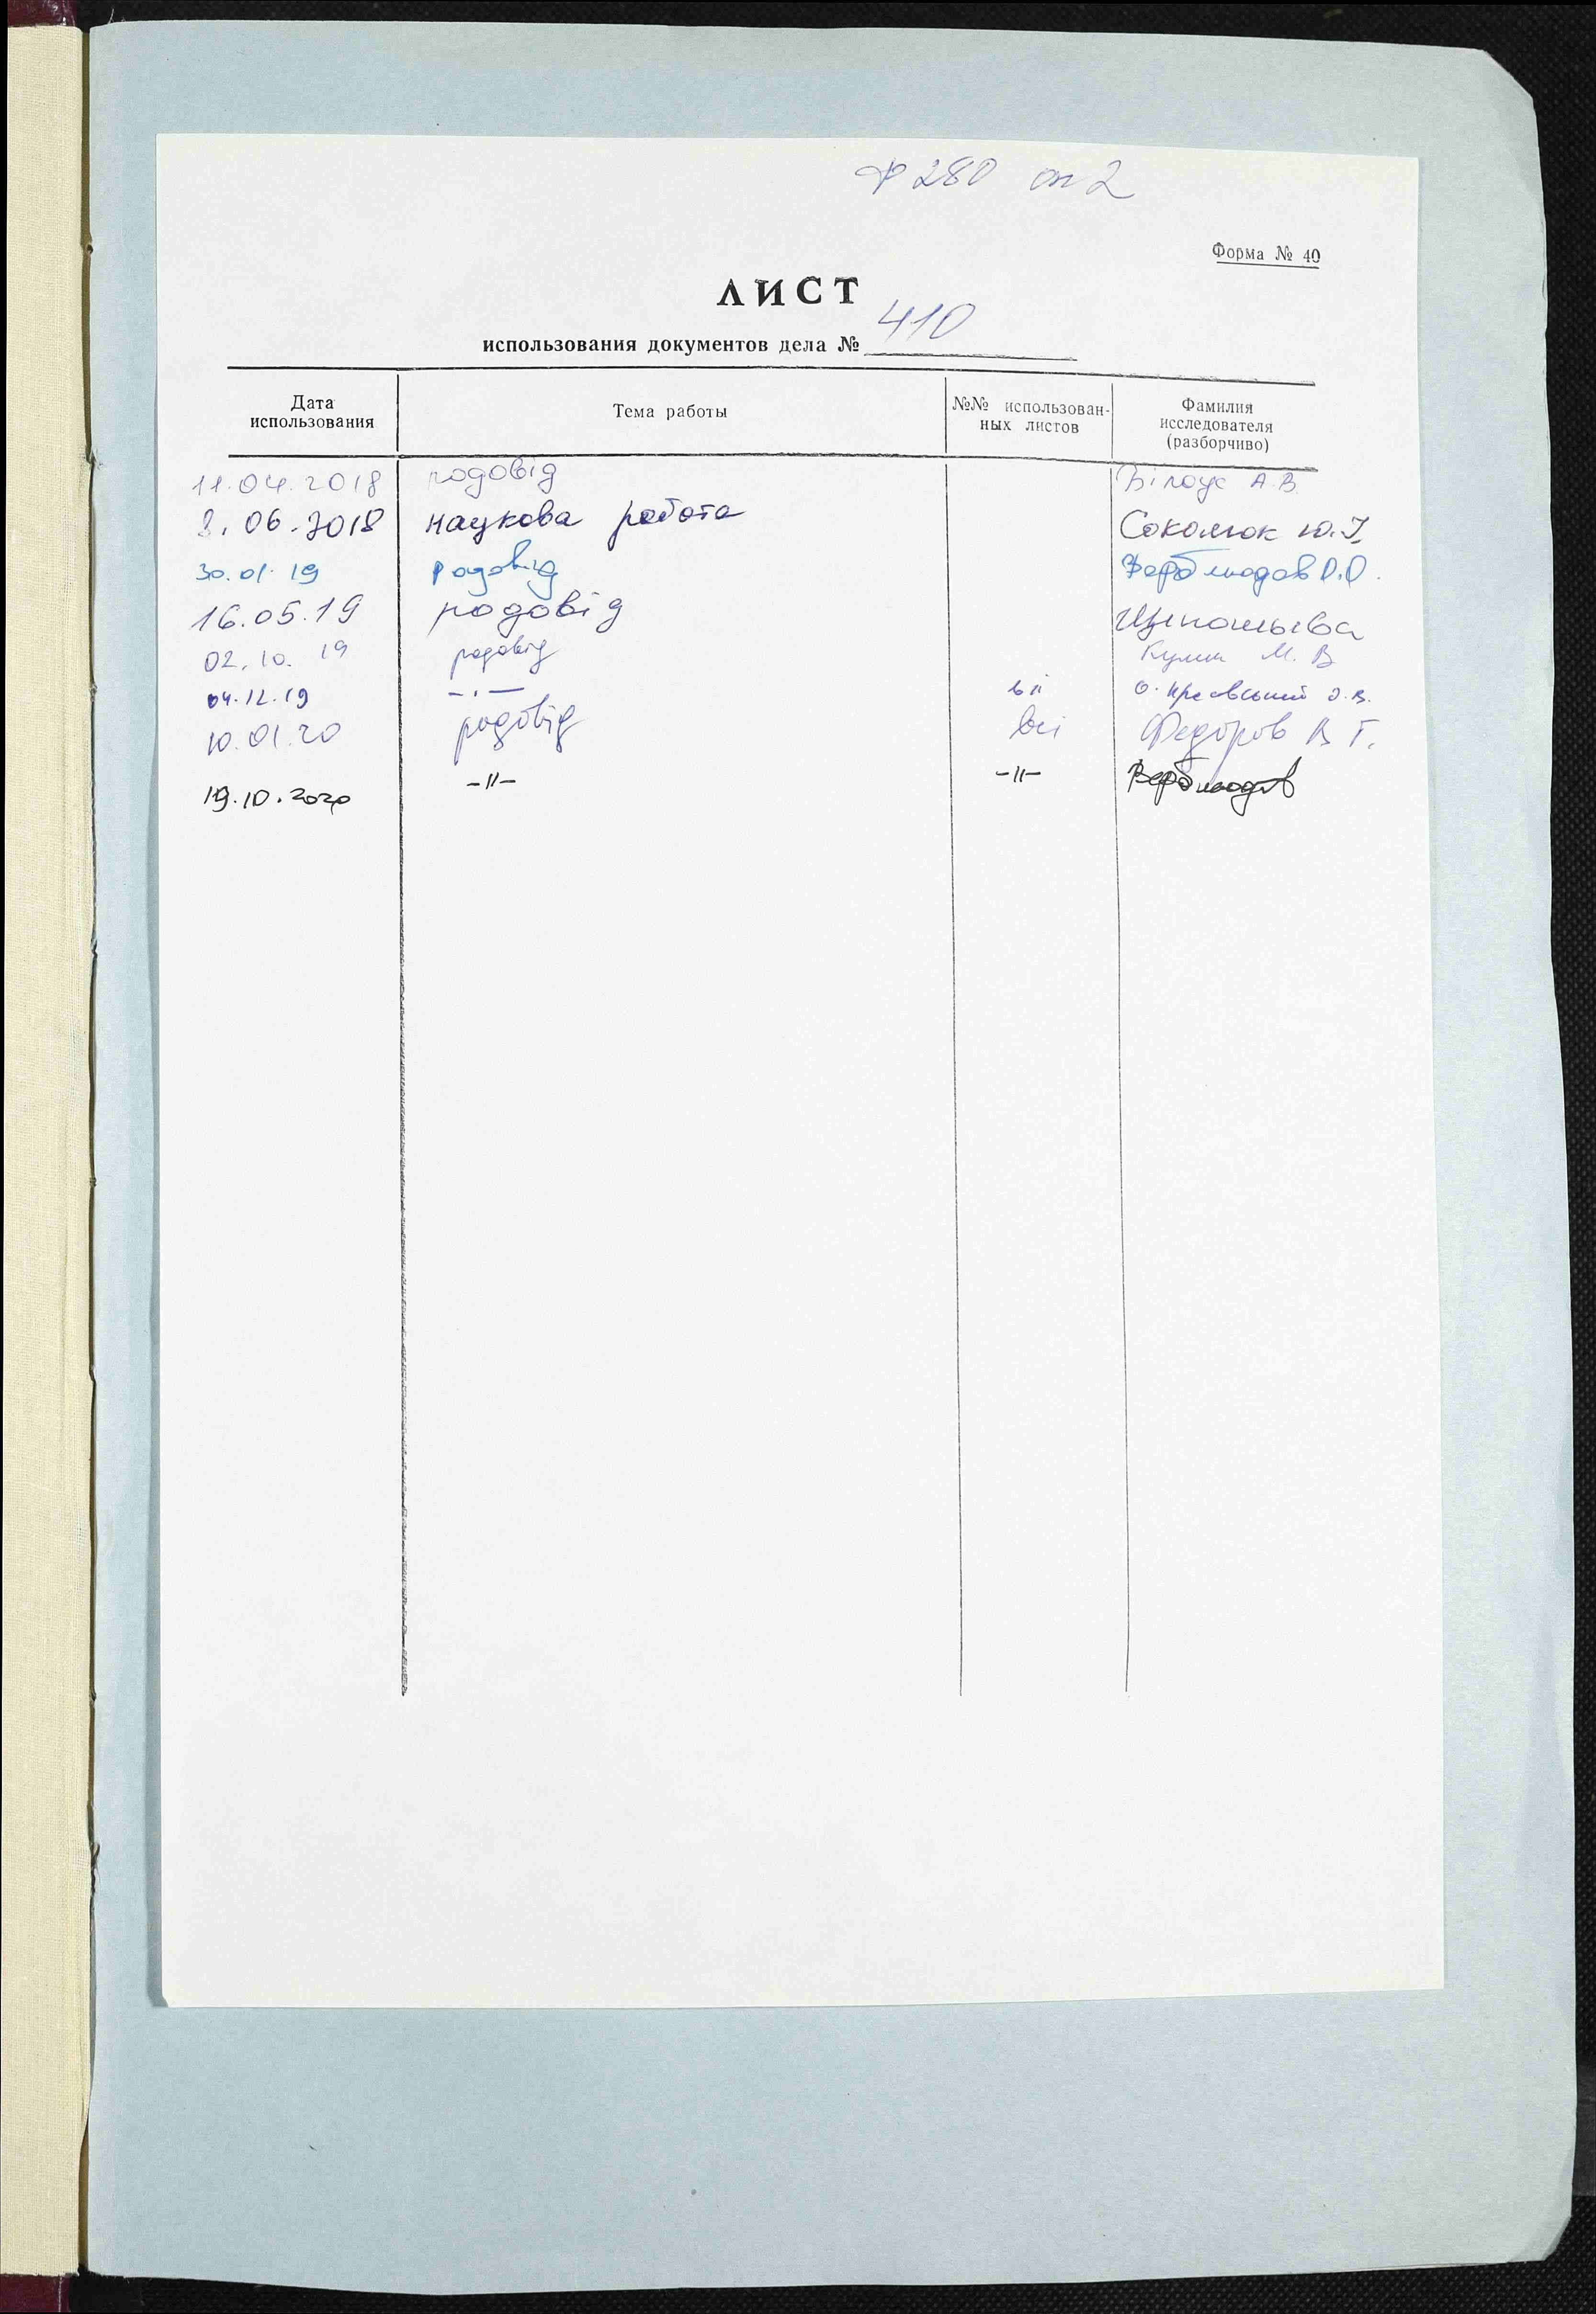 ф 280 оп 2
Форма № 40
ЛИСТ
использования документов дела № 410
Дата использования Тема работы №№ использован-ных листов Фамилия исследователя (разборчиво)
11.04.2018 родовід Білоус А.В.
8.06.2018 наукова работа Соколюк Ю.І.
30.01.19 родовід Верблюдов О.О.
16.05.19 родовід
02.10.19 родовід М. В
04.12.19 -"- всі О.В.
10.01.20 родовід всі Федоров В Г.
19.10.2020 -"- -"- Верблюдов